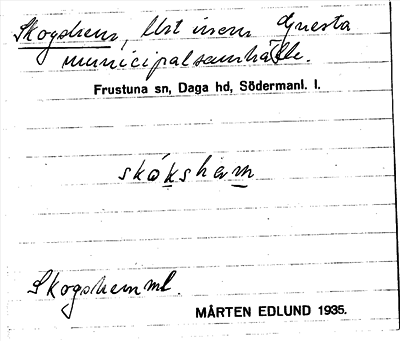 Skogshem, Utst inom Gnesta
municipalsamhälle.
Frustuna sn, Daga hd, Södermanl. l.
skókshäm
Skogshemmet.
MÅRTEN EDLUND 1935.